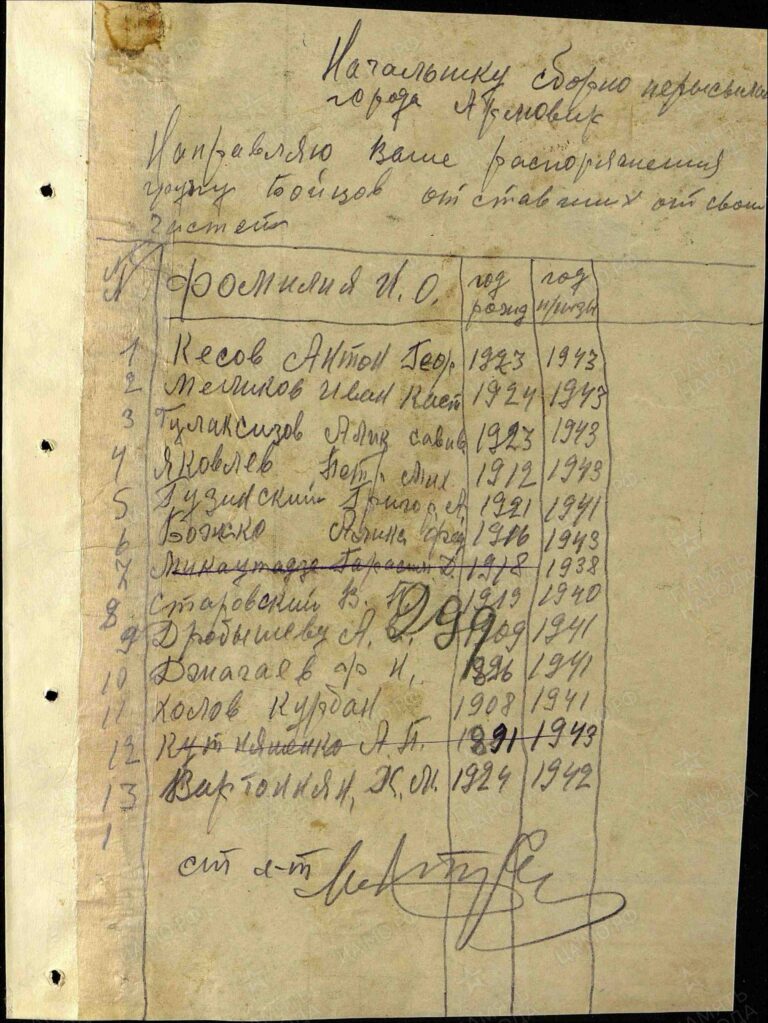 Начальнику сборно пересыльн
города Армовир
Направляю Ваше распоряжения
групу Бойцов отставших от своих
Частей
№ Фомилия И. О. год рожд год призы
1 Кесов Антон Геор. 1923 1943
2 Меликов Иван Каст 1924 1943
3 Тулаксизов Алик савив 1923 1943
4 Яковлев Петр Мих 1912 1943
5 Гузинский Григор. А 1921 1941
6 Божко 1916 1943
7 Микаутадзе Гарасим Д. 1918 1938
8 Старовский В. П. 1919 1940
9 Дробышеву А. 1909 1941
299
10 Джагаев ф И. 896 1941
11 Холов Курбан 1908 1941
12 А.П. 1891 1943
13 Вартонян, Х. М. 1924 1942
1
ст л-т